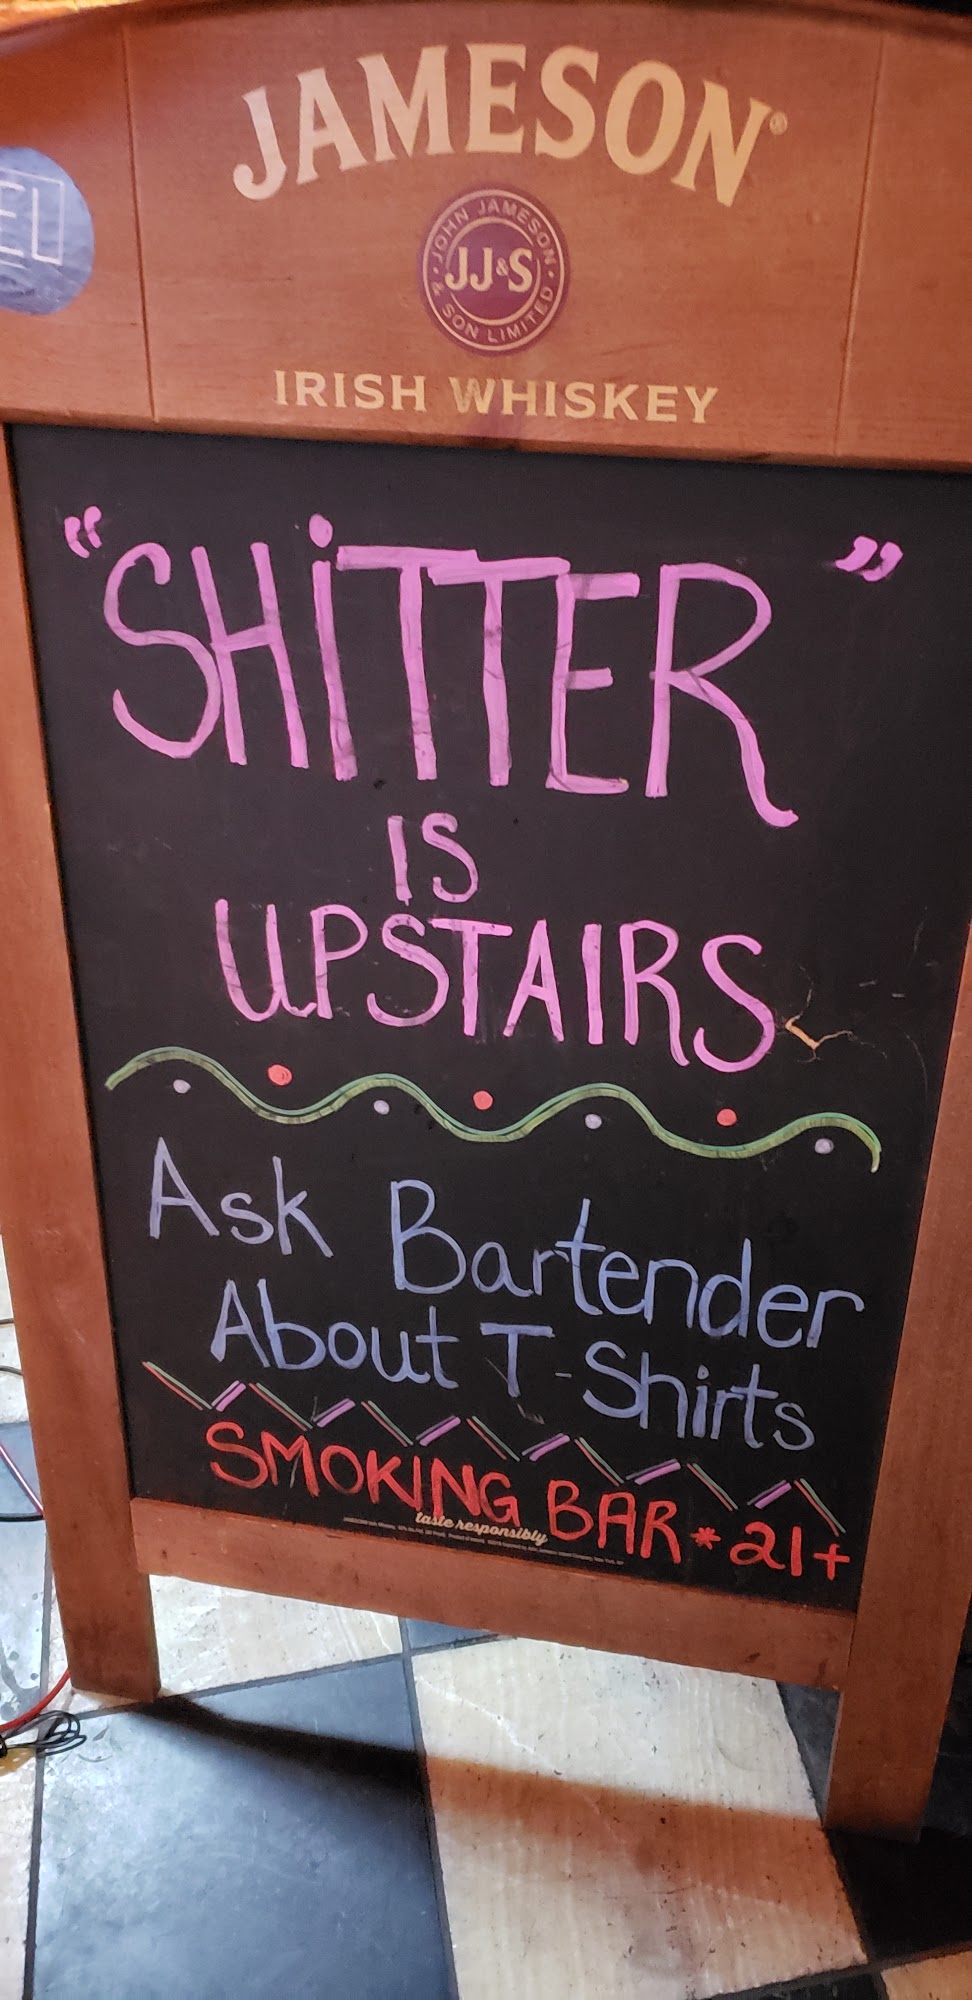 JAMESON®
EL
JOHN JAMESON
JJ&S
& SON LIMITED
IRISH WHISKEY
"SHiTTER"
IS
UPSTAIRS
Ask Bartender
About T-Shirts
SMOKING BAR * 21+
taste responsibly